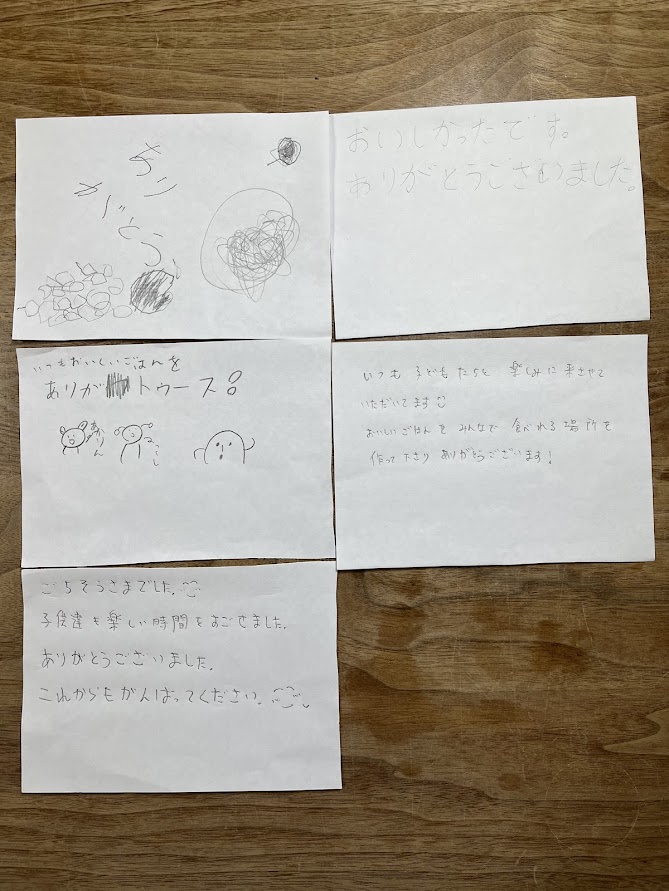 おいしかったです。
ありがとうございました。
いつもおいしいごはんを
ありが トゥース!
あかりん
いつも 子どもたちと 楽しみに 来させて
いただいてます
おいしいごはんを みんなで 食べれる 場所を
作って下さり ありがとうございます!
ごちそうさまでした。
子供達も楽しい時間をすごせました。
ありがとうございました。
これからもがんばってください。